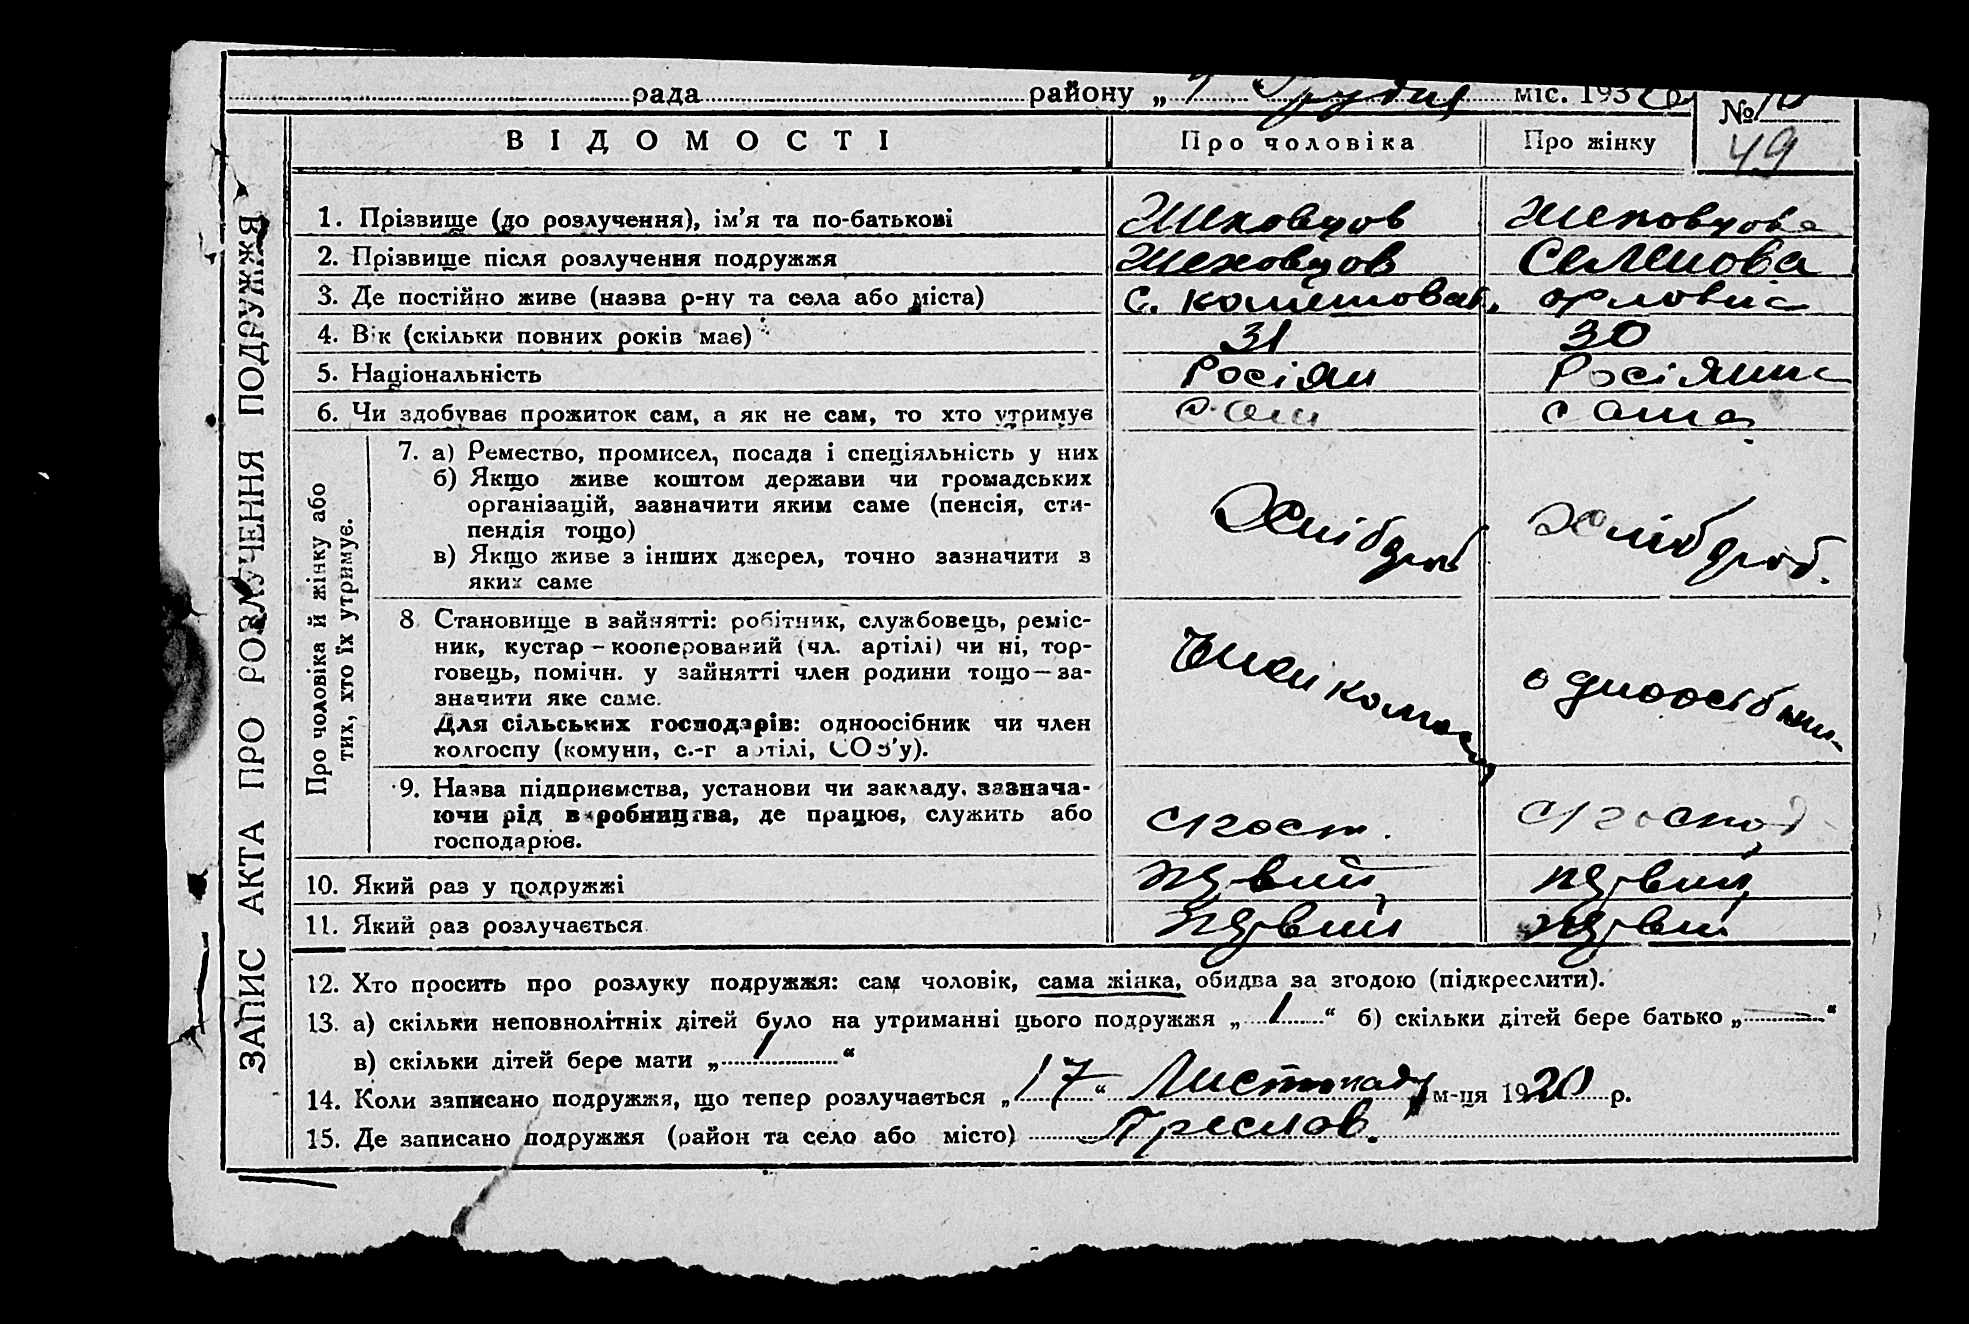 рада району „ 9 “ Грудня міс. 193 р. №
49
ВІДОМОСТІ Про чоловіка Про жінку
1. Прізвище (до розлучення), ім’я та по-батькові Шеховцов Шеховцова
2. Прізвище після розлучення подружжя Шеховцов Семенова
3. Де постійно живе (назва р-ну та села або міста) с.
4. Вік (скільки повних років має) 31 30
5. Національність Росіян Росіянка
6. Чи здобував прожиток сам, а як не сам, то хто утримує сам сама
7. а) Ремество, промисел, посада і спеціяльність у них
б) Якщо живе коштом держави чи громадських
організацій, зазначити яким саме (пенсія, сти-
пендія тощо) Хлібороб Хлібороб.
в) Якщо живе з інших джерел, точно зазначити з
яких саме
8. Становище в зайнятті: робітник, службовець, реміс-
ник, кустар – кооперований (чл. артілі) чи ні, тор-
говець, помічн. у зайнятті член родини тощо — за-
значити яке саме.
Для сільських господарів: одноосібник чи член
колгоспу (комуни, с.-г артілі, СОЗ’у). одноосібни-
9. Назва підприємства, установи чи закладу, зазнача-
ючи рід виробництва, де працює, служить або
господарює.
10. Який раз у подружжі первий первий
11. Який раз розлучається первий первий
12. Хто просить про розлуку подружжя: сам чоловік, сама жінка, обидва за згодою (підкреслити).
13. а) скільки неповнолітніх дітей було на утриманні цього подружжя „ 1 “ б) скільки дітей бере батько „ — “
в) скільки дітей бере мати „ 1 “
14. Коли записано подружжя, що тепер розлучається „ 17 “ Листопаду м-ця 1920 р.
15. Де записано подружжя (район та село або місто) Преслав.
ЗАПИС АКТА ПРО РОЗЛУЧЕННЯ ПОДРУЖЖЯ
Про чоловіка й жінку або
тих, хто їх утримує.